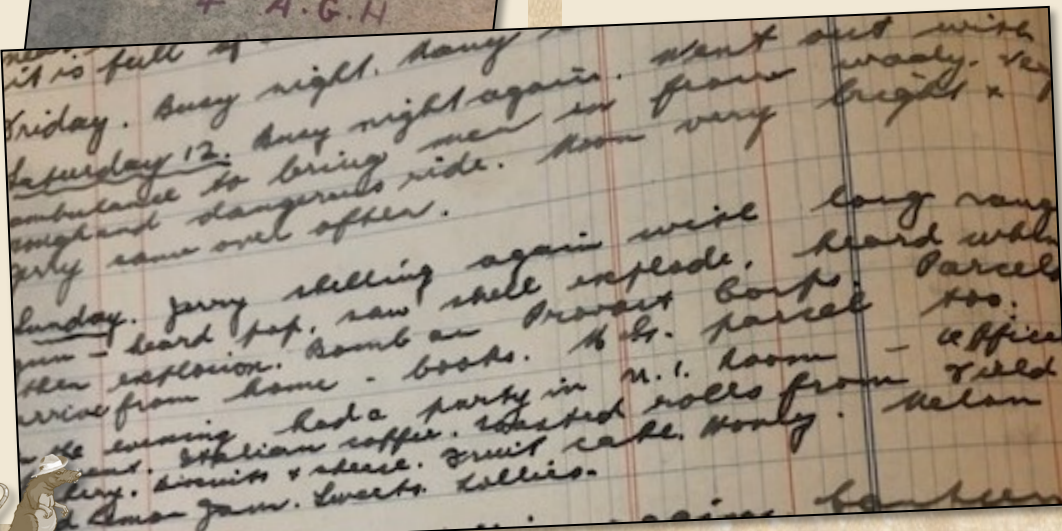 4 A.G.H
it is full of
Friday. Busy night. Many
Saturday 12. Busy night again. Went out with
ambulance to bring men in from wady. Very
rough and dangerous ride. Moon very bright &
Jerry came over after.
Sunday. Jerry shelling again with long range
gun - heard pop, saw shell explode, heard
then explosion. Bomb on Provost Corps. Parcel
arrive from home - books. parcel too.
the evening had a party in room - Officers
Italian coffee. Toasted rolls from Field
Bakery. Biscuits & cheese. Fruit cake. Honey. Melon
Lemon Jam. Sweets. Lollies.
again